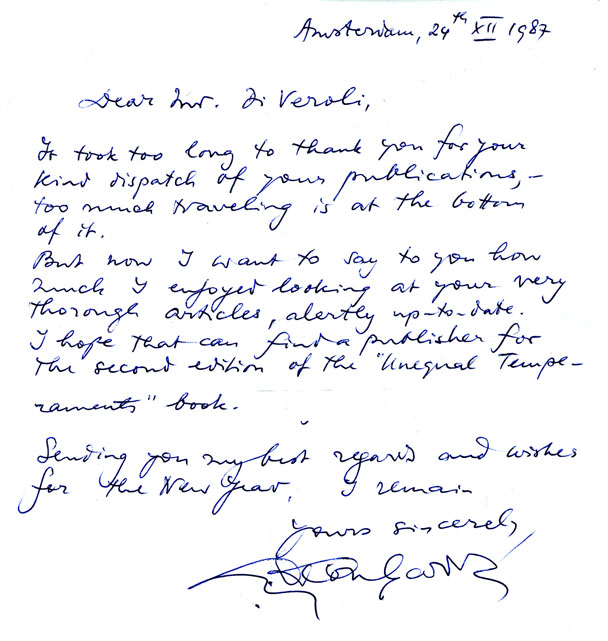 Amsterdam, 24th XII 1987
Dear Mr. Di Veroli,
It took too long to thank you for your
kind dispatch of your publications, –
too much traveling is at the bottom
of it.
But now I want to say to you how
much I enjoyed looking at your very
thorough articles, alertly up-to-date.
I hope that can find a publisher for
the second edition of the "Unequal Tempe-
raments" book.
Sending you my best regards and wishes
for the New Year, I remain
yours sincerely